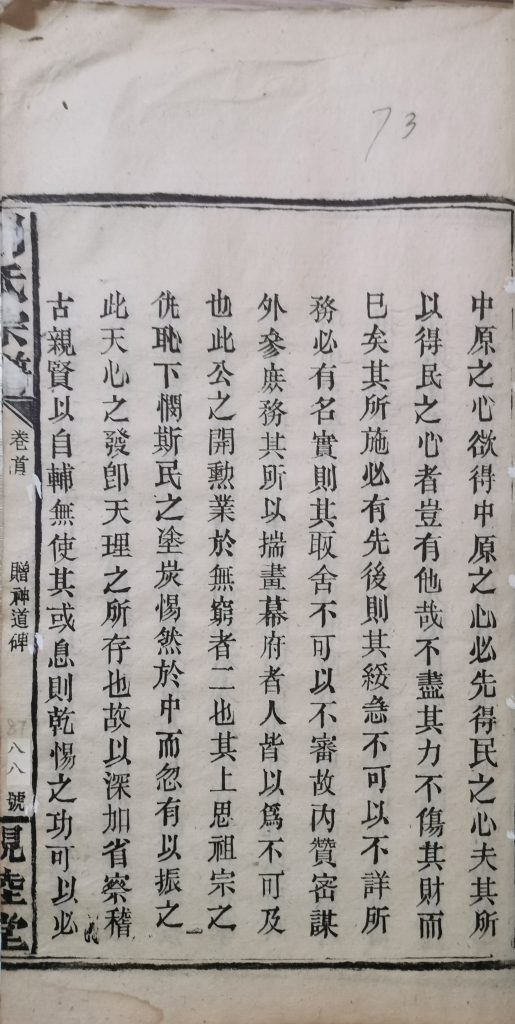 73
中原之心欲得中原之心必先得民之心夫其所
以得民之心者豈有他哉不盡其力不傷其財而
巳矣其所施必有先後則其緩急不可以不詳所
務必有名實則其取舍不可以不審故內贊密謀
外參庶務其所以揣畫幕府者人皆以爲不可及
也此公之開勲業於無窮者二也其上思祖宗之
侁恥下憫斯民之塗炭惕然於中而忽有以振之
此天心之發卽天理之所存也故以深加省察稽
古親賢以自輔無使其或息則乾惕之功可以必
氏宗譜
卷首
贈神道碑
八八號
堂